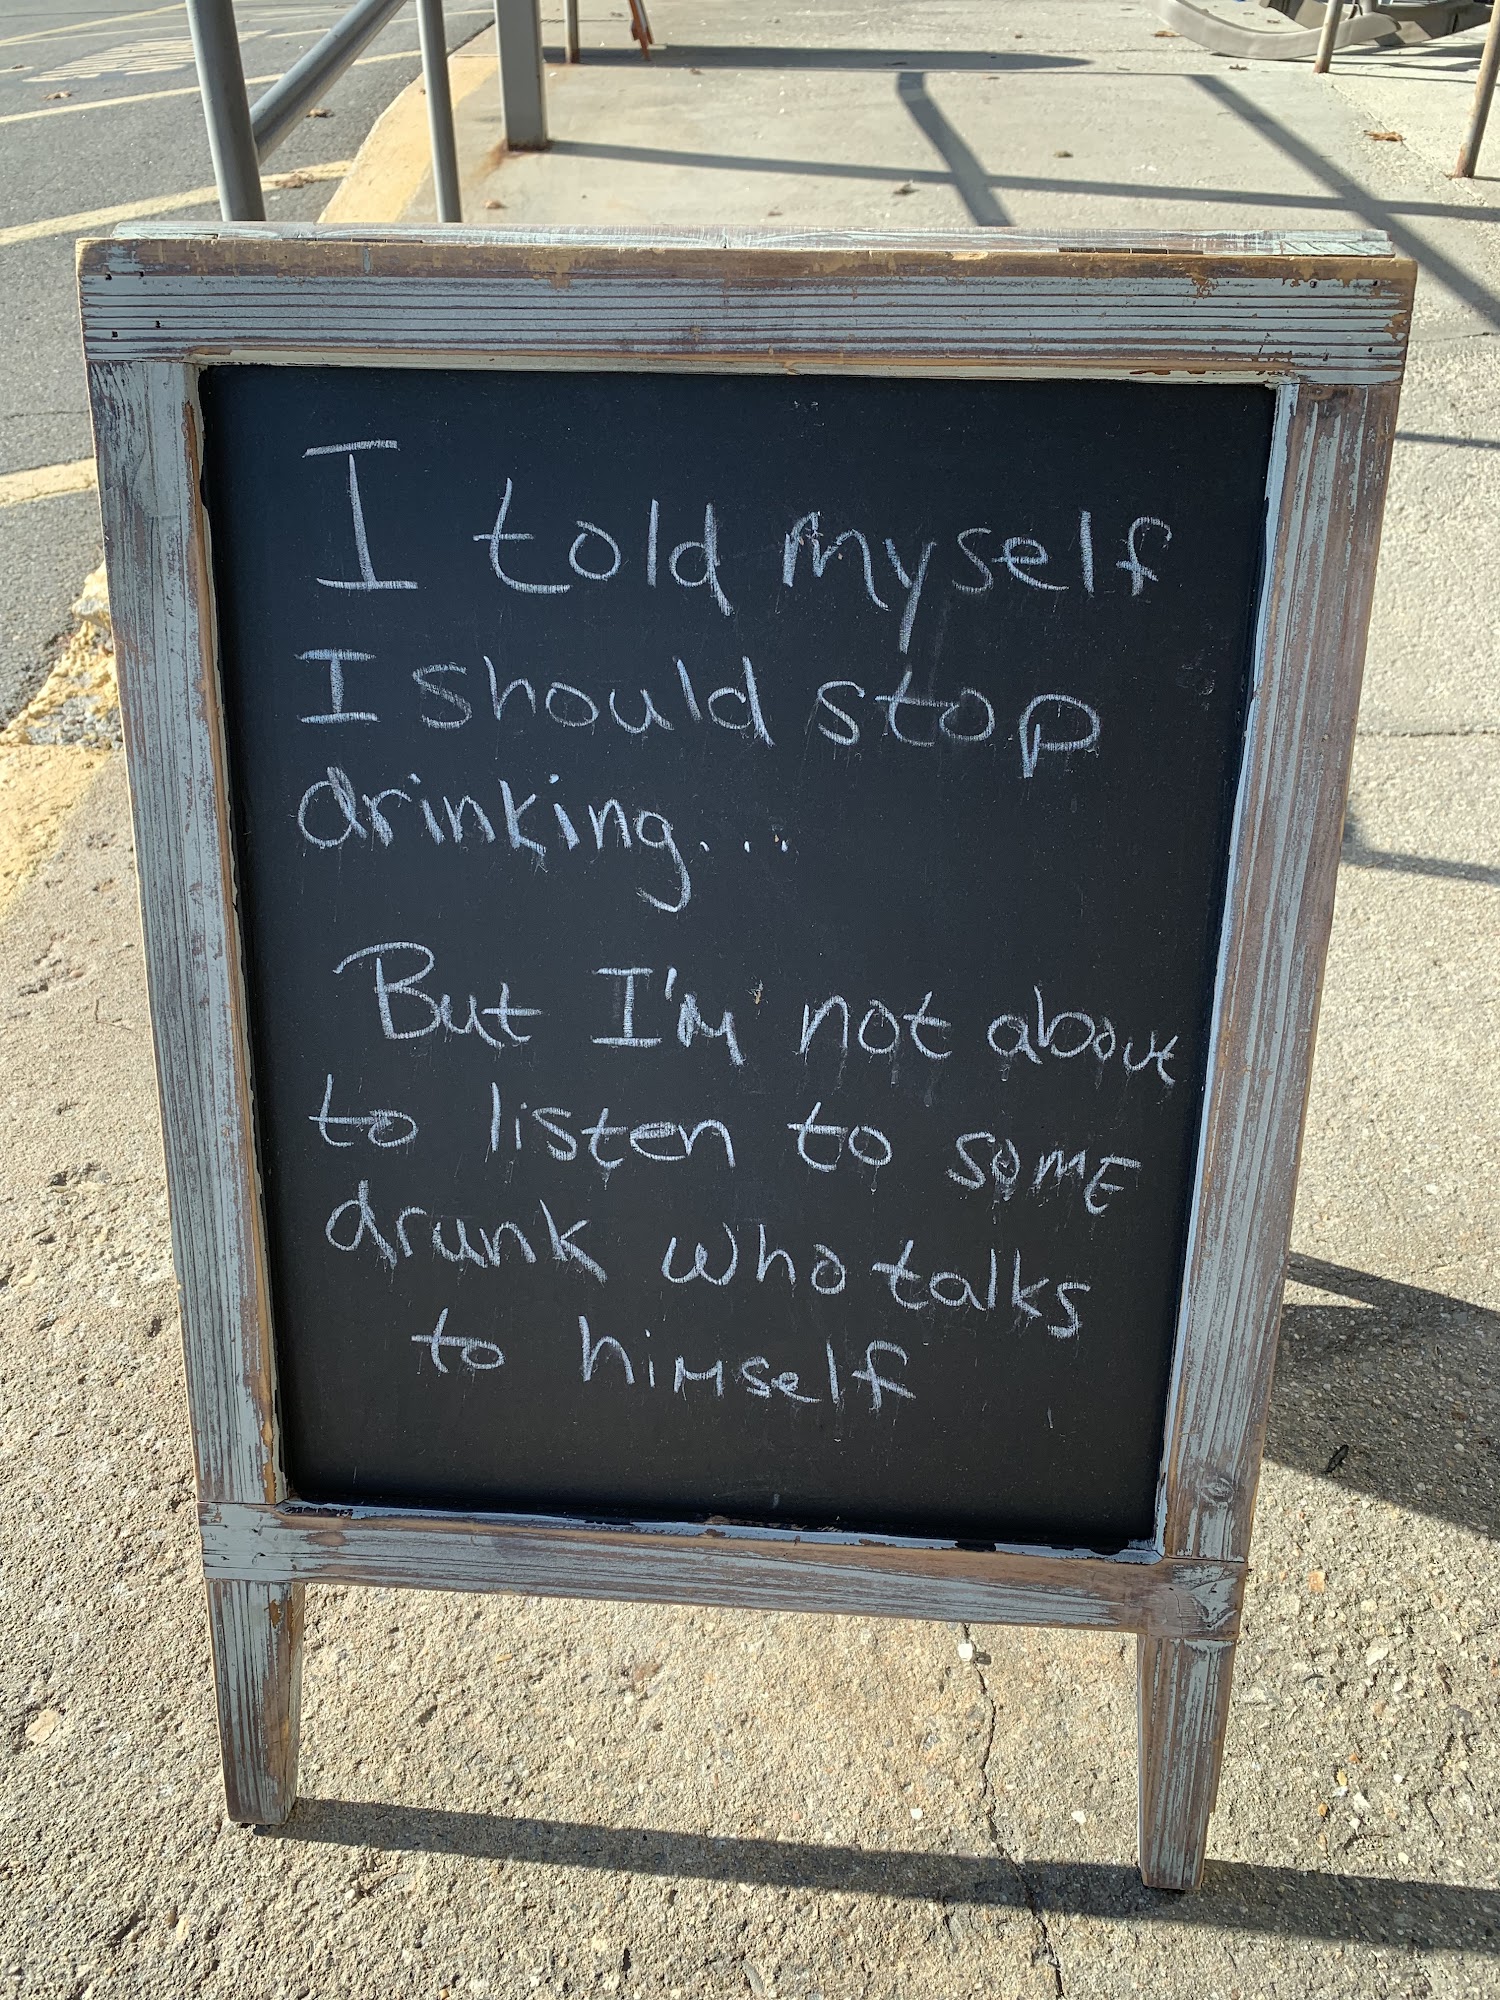 I told myself
I should stop
drinking...
But I'm not about
to listen to some
drunk who talks
to himself